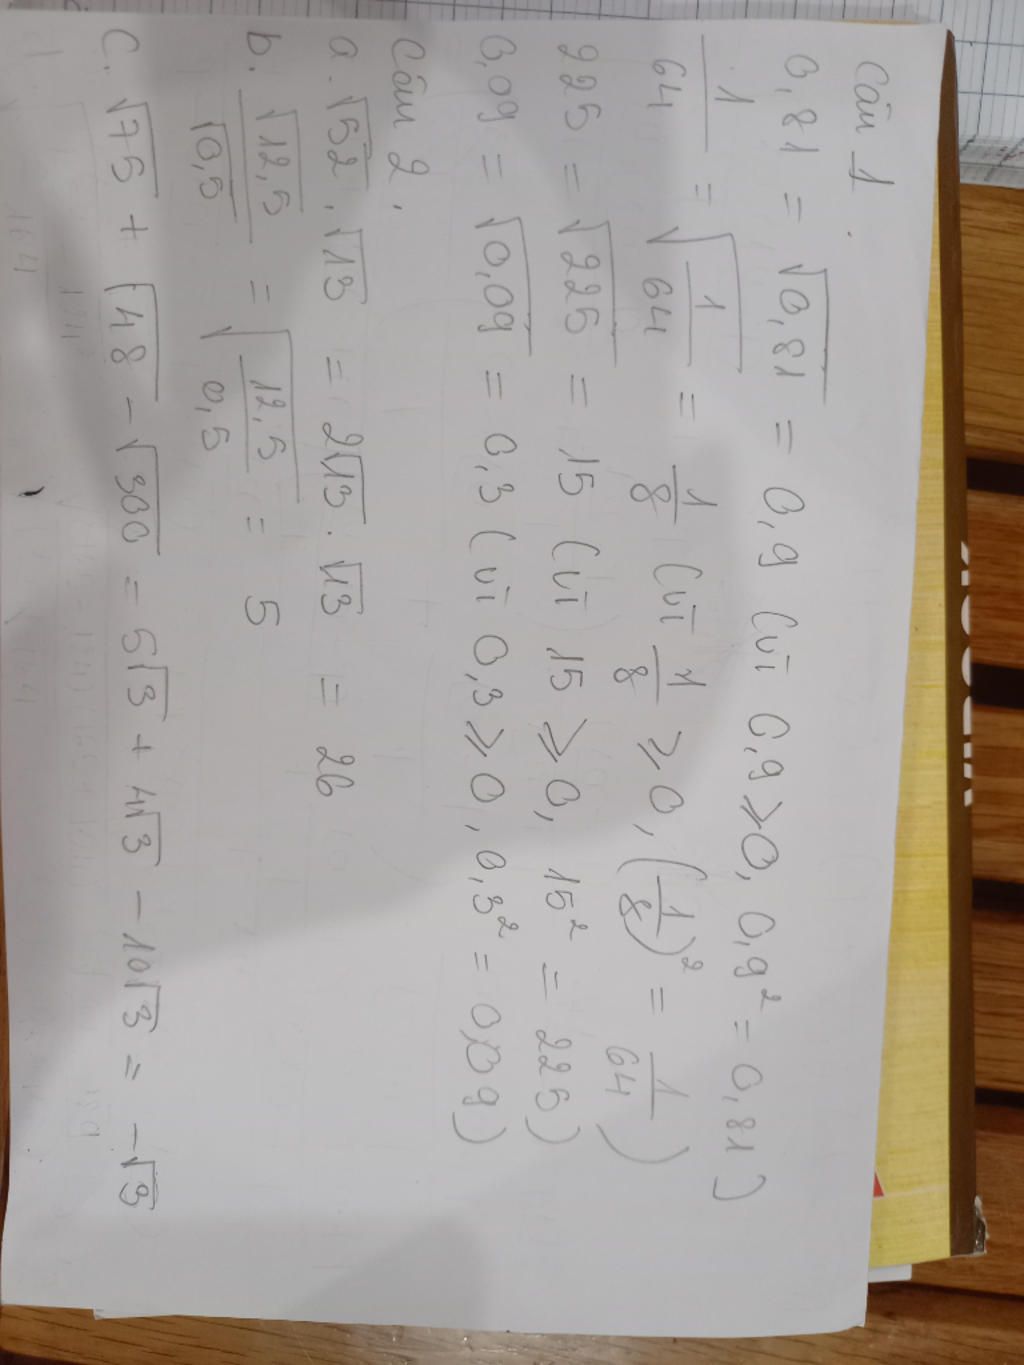 Câu 1.
0,81 = √0,81 = 0,9 (vì 0,9 ⩾ 0, 0,9² = 0,81)
1/64 = √(1/64) = 1/8 (vì 1/8 ⩾ 0, (1/8)² = 1/64)
225 = √225 = 15 (vì 15 ⩾ 0, 15² = 225)
0,09 = √0,09 = 0,3 (vì 0,3 ⩾ 0, 0,3² = 0,09)
Câu 2.
a. √52 . √13 = 2√13 . √13 = 26
b. √12,5/√0,5 = √(12,5/0,5) = 5
C. √75 + √48 - √300 = 5√3 + 4√3 - 10√3 = -√3